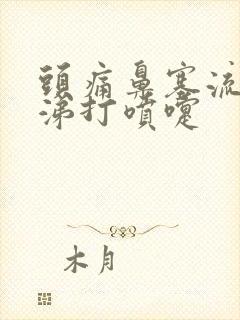 頭痛鼻塞流
涕打噴嚏
木月